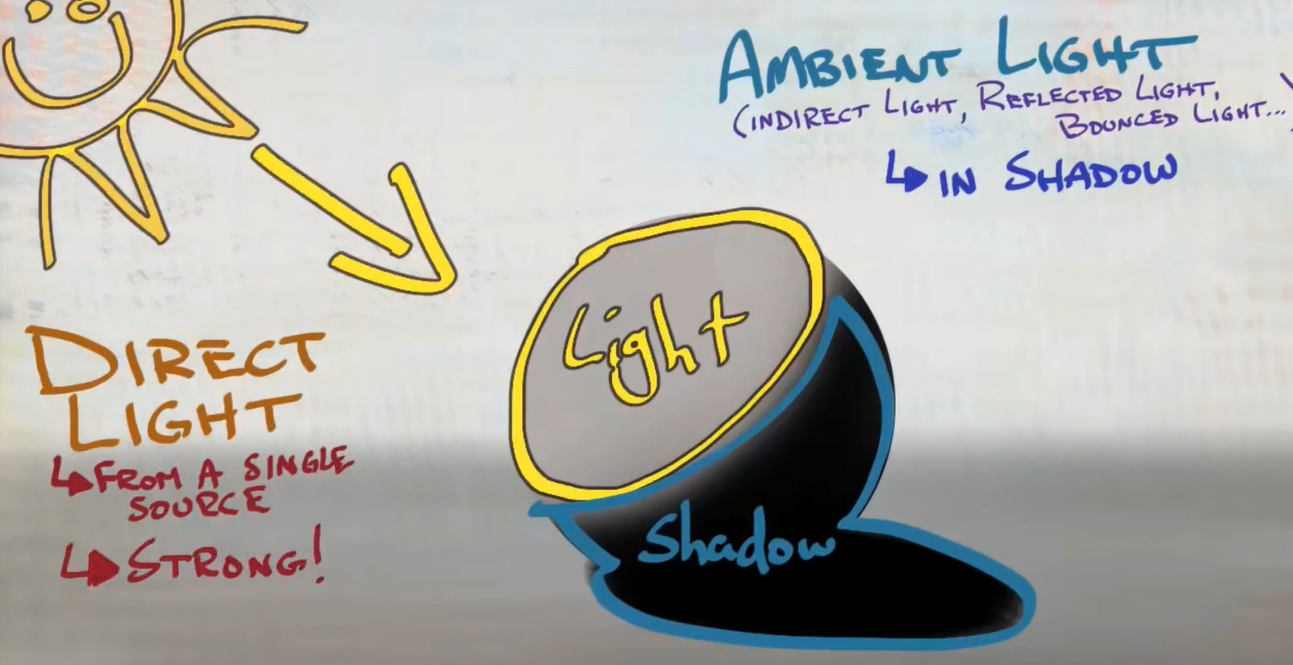 AMBIENT LIGHT
(INDIRECT LIGHT, REFLECTED LIGHT,
BOUNCED LIGHT...)
IN SHADOW
Light
DIRECT
LIGHT
FROM A SINGLE
SOURCE
STRONG!
Shadow